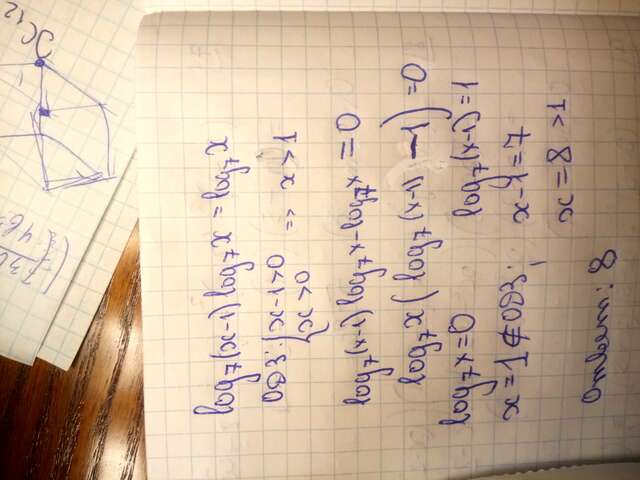 log₇(x-1) log₇x = log₇x
ОДЗ: { x-1>0 x>0 <= x>1
log₇(x-1) log₇x - log₇x = 0
log₇x (log₇(x-1) - 1) = 0
log₇x = 0 log₇(x-1) = 1
x = 1 ∉ ОДЗ; x-1 = 7
x = 8 >1
Ответ: 8